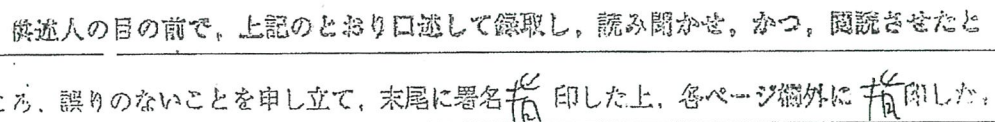 供述人の目の前で,上記のとおり口述して録取し,読み聞かせ,かつ,閲読させたと
ころ,誤りのないことを申し立て,末尾に署名指印した上,各ページ欄外に指印した。